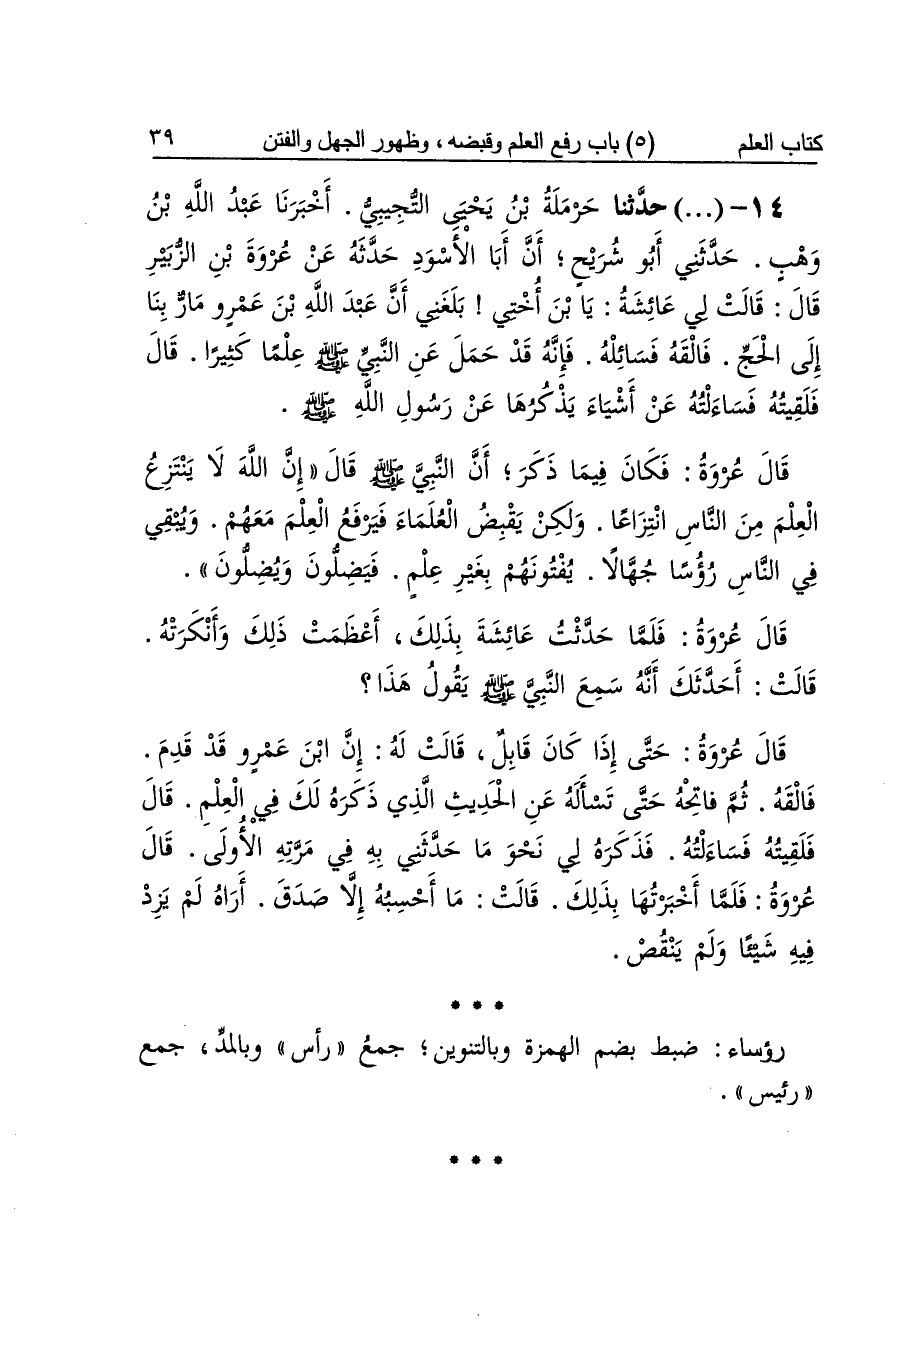 كتاب العلم (٥) باب رفع العلم وقبضه ، وظهور الجهل والفتن ٣٩
١٤ - (...) حدَّثنا حَرْمَلَةُ بْنُ يَحْيَى التُّجِيبِيُّ . أَخْبَرَنَا عَبْدُ اللَّهِ بْنُ
وَهْبٍ . حَدَّثَنِي أَبُو شُرَيْحٍ ؛ أَنَّ أَبَا الْأَسْوَدِ حَدَّثَهُ عَنْ عُرْوَةَ بْنِ الزُّبَيْرِ
قَالَ : قَالَتْ لِي عَائِشَةُ : يَا بْنَ أُخْتِي ! بَلَغَنِي أَنَّ عَبْدَ اللَّهِ بْنَ عَمْرٍو مَارٌّ بِنَا
إِلَى الْحَجِّ . فَالْقَهُ فَسَائِلْهُ . فَإِنَّهُ قَدْ حَمَلَ عَنِ النَّبِيِّ ﷺ عِلْمًا كَثِيرًا . قَالَ
فَلَقِيتُهُ فَسَاءَلْتُهُ عَنْ أَشْيَاءَ يَذْكُرُهَا عَنْ رَسُولِ اللَّهِ ﷺ .
قَالَ عُرْوَةُ : فَكَانَ فِيمَا ذَكَرَ ؛ أَنَّ النَّبِيَّ ﷺ قَالَ « إِنَّ اللَّهَ لَا يَنْتَزِعُ
الْعِلْمَ مِنَ النَّاسِ انْتِزَاعًا . وَلَكِنْ يَقْبِضُ الْعُلَمَاءَ فَيَرْفَعُ الْعِلْمَ مَعَهُمْ . وَيُبْقِي
فِي النَّاسِ رُؤُسًا جُهَّالًا . يُفْتُونَهُمْ بِغَيْرِ عِلْمٍ . فَيَضِلُّونَ وَيُضِلُّونَ » .
قَالَ عُرْوَةُ : فَلَمَّا حَدَّثْتُ عَائِشَةَ بِذَلِكَ ، أَعْظَمَتْ ذَلِكَ وَأَنْكَرَتْهُ .
قَالَتْ : أَحَدَّثَكَ أَنَّهُ سَمِعَ النَّبِيَّ ﷺ يَقُولُ هَذَا ؟
قَالَ عُرْوَةُ : حَتَّى إِذَا كَانَ قَابِلٌ ، قَالَتْ لَهُ : إِنَّ ابْنَ عَمْرٍو قَدْ قَدِمَ .
فَالْقَهُ . ثُمَّ فَاتِحْهُ حَتَّى تَسْأَلَهُ عَنِ الْحَدِيثِ الَّذِي ذَكَرَهُ لَكَ فِي الْعِلْمِ . قَالَ
فَلَقِيتُهُ فَسَاءَلْتُهُ . فَذَكَرَهُ لِي نَحْوَ مَا حَدَّثَنِي بِهِ فِي مَرَّتِهِ الْأُولَى . قَالَ
عُرْوَةُ : فَلَمَّا أَخْبَرْتُهَا بِذَلِكَ . قَالَتْ : مَا أَحْسِبُهُ إِلَّا صَدَقَ . أَرَاهُ لَمْ يَزِدْ
فِيهِ شَيْئًا وَلَمْ يَنْقُصْ .
* * *
رؤساء : ضبط بضم الهمزة وبالتنوين ؛ جمعُ « رأس » وبالمدِّ ، جمع
« رئيس » .
* * *